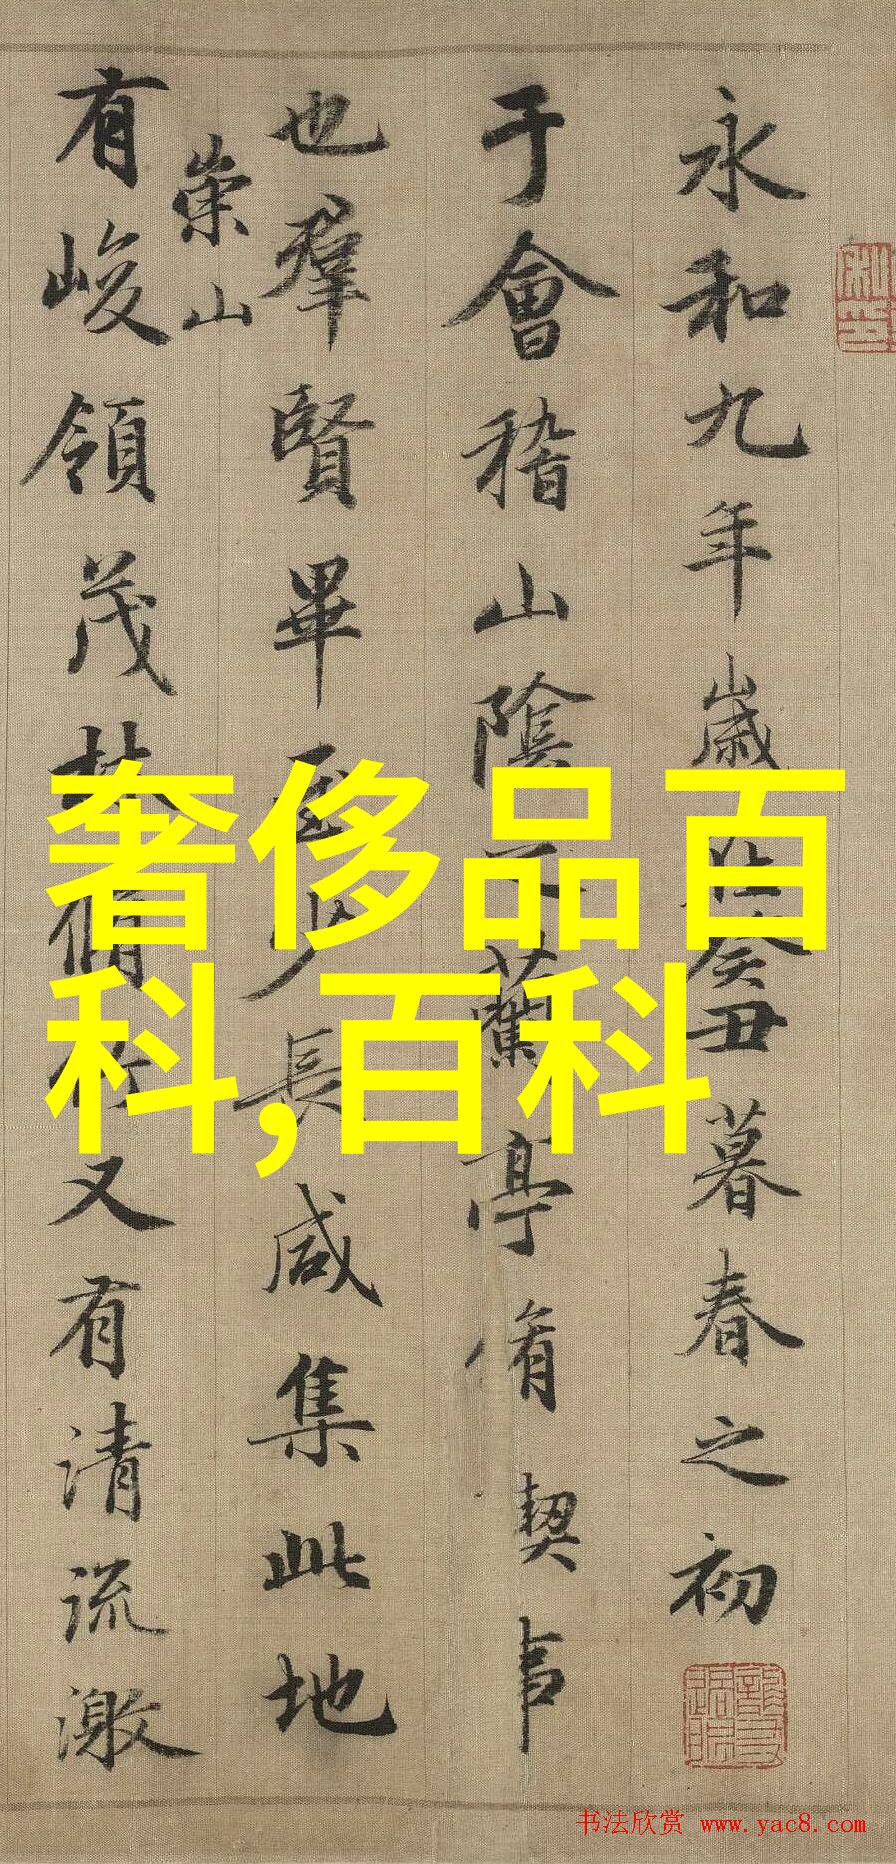 永和九年歲在癸丑暮春之初
于會稽山陰之蘭亭脩禊事
也羣賢畢至少長咸集此地
崇山
有峻領茂林脩竹又有清流激
奢侈品百
科,百科
书法欣赏 www.yac8.com